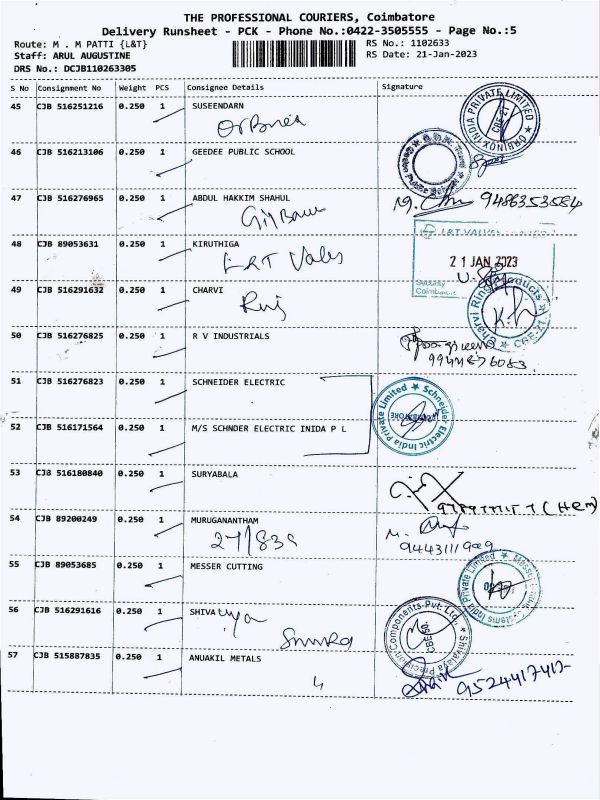 THE PROFESSIONAL COURIERS, Coimbatore
Delivery Runsheet - PCK - Phone No.:0422-3505555 - Page No.:5
Route: M . M PATTI {L&T} RS No.: 1102633
Staff: ARUL AUGUSTINE RS Date: 21-Jan-2023
DRS No.: DCJB110263305
S No Consignment No Weight PCS Consignee Details Signature
45 CJB 516251216 0.250 1 SUSEENDARN
ORBINOX INDIA PRIVATE LIMITED
CBE-21
46 CJB 516213106 0.250 1 GEEDEE PUBLIC SCHOOL
47 CJB 516276965 0.250 1 ABDUL HAKKIM SHAHUL
9486353584
48 CJB 89053631 0.250 1 KIRUTHIGA
L&T Valves
L&T VALVES
21 JAN 2023
Security
Coimbatore
49 CJB 516291632 0.250 1 CHARVI
Charvi Ring Products
CBE-21
50 CJB 516276825 0.250 1 R V INDUSTRIALS
51 CJB 516276823 0.250 1 SCHNEIDER ELECTRIC
Schneider Electric India Private Limited
52 CJB 516171564 0.250 1 M/S SCHNDER ELECTRIC INIDA P L
53 CJB 516180840 0.250 1 SURYABALA
(Hem)
54 CJB 89200249 0.250 1 MURUGANANTHAM
27/83a
55 CJB 89053685 0.250 1 MESSER CUTTING
56 CJB 516291616 0.250 1 SHIVALAYA
Shivalaya Precision Components Pvt. Ltd.,
57 CJB 515887835 0.250 1 ANUAKIL METALS
4
9524417417